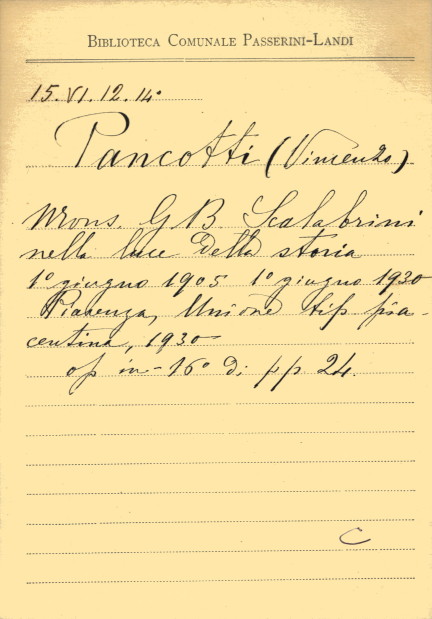 BIBLIOTECA COMUNALE PASSERINI-LANDI
15.VI.12.14°
Pancotti (Vincenzo)
Mons. G B Scalabrini
nella luce della storia
1° giugno 1905 1° giugno 1930
Piacenza, Unione tip pia-
centina, 1930
op in-16° di pp 24.
C